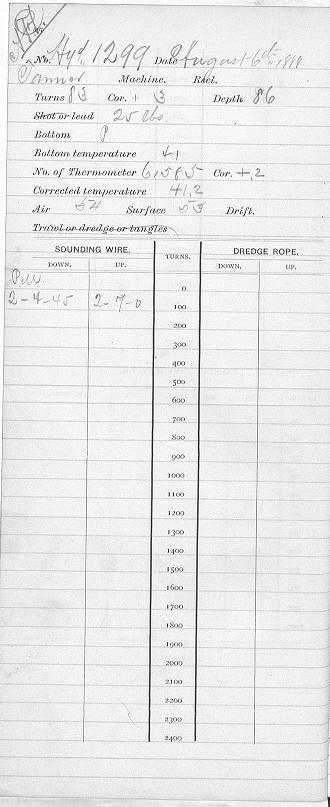 No. Hyd. 1299 Date August 6th, 1888
Tanner Machine. Reel.
Turns 83 Cor. + 3 Depth 86
Shot or lead 25 lbs.
Bottom P
Bottom temperature 41
No. of Thermometer 61585 Cor. +.2
Corrected temperature 41.2
Air 54 Surface 53 Drift.
Trawl or dredge or tangles
SOUNDING WIRE. TURNS. DREDGE ROPE.
DOWN. UP. DOWN. UP.
P.M. 0
2-4-45 2-7-0 100
200
300
400
500
600
700
800
900
1000
1100
1200
1300
1400
1500
1600
1700
1800
1900
2000
2100
2200
2300
2400